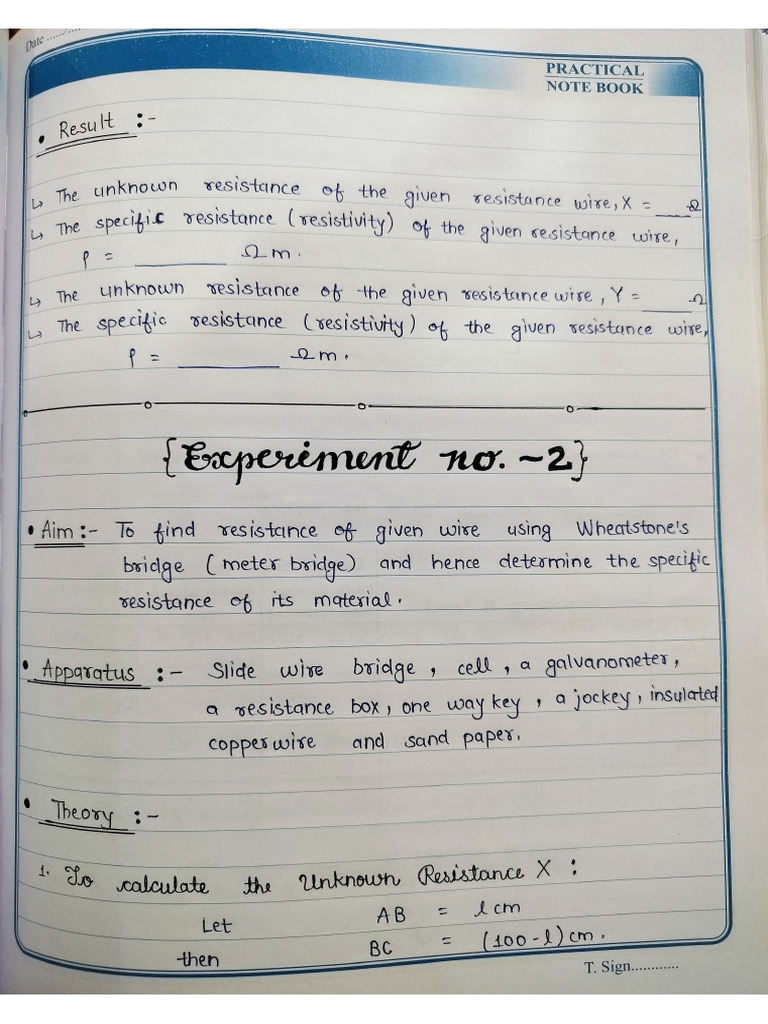 Date ......./....
PRACTICAL
NOTE BOOK
• Result :-
↳ The unknown resistance of the given resistance wire, X = ___ Ω
↳ The specific resistance (resistivity) of the given resistance wire,
ρ = ________ Ωm.
↳ The unknown resistance of the given resistance wire, Y = ____ Ω
↳ The specific resistance (resistivity) of the given resistance wire,
ρ = ________ Ωm.
{Experiment no. -2}
• Aim :- To find resistance of given wire using Wheatstone's
bridge (meter bridge) and hence determine the specific
resistance of its material.
• Apparatus :- Slide wire bridge, cell, a galvanometer,
a resistance box, one way key, a jockey, insulated
copper wire and sand paper.
• Theory :-
1. To calculate the Unknown Resistance X :
Let AB = l cm
then BC = (100-l) cm.
T. Sign............